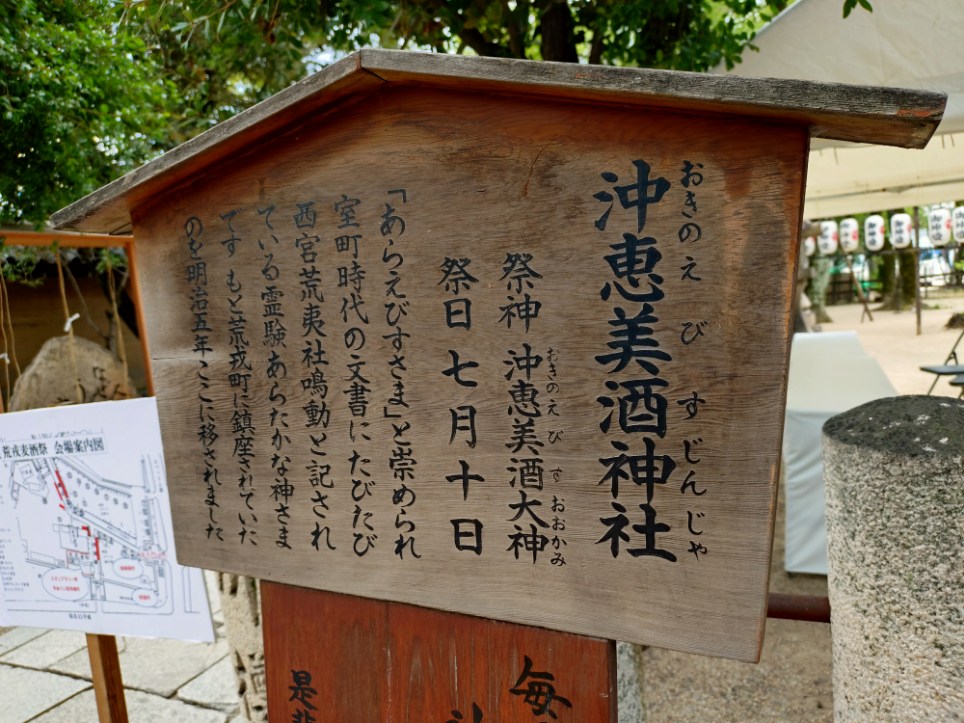 おきのえびすじんじゃ
沖恵美酒神社
祭神 沖恵美酒大神
おきのえびすおおかみ
祭日 七月十日
「あらえびすさま」と崇められ
室町時代の文書にたびたび
西宮荒夷社鳴動と記され
ている霊験あらたかな神さま
です もと荒戎町に鎮座されていた
のを明治五年ここに移されました
麦酒祭 会場案内図
毎
是非